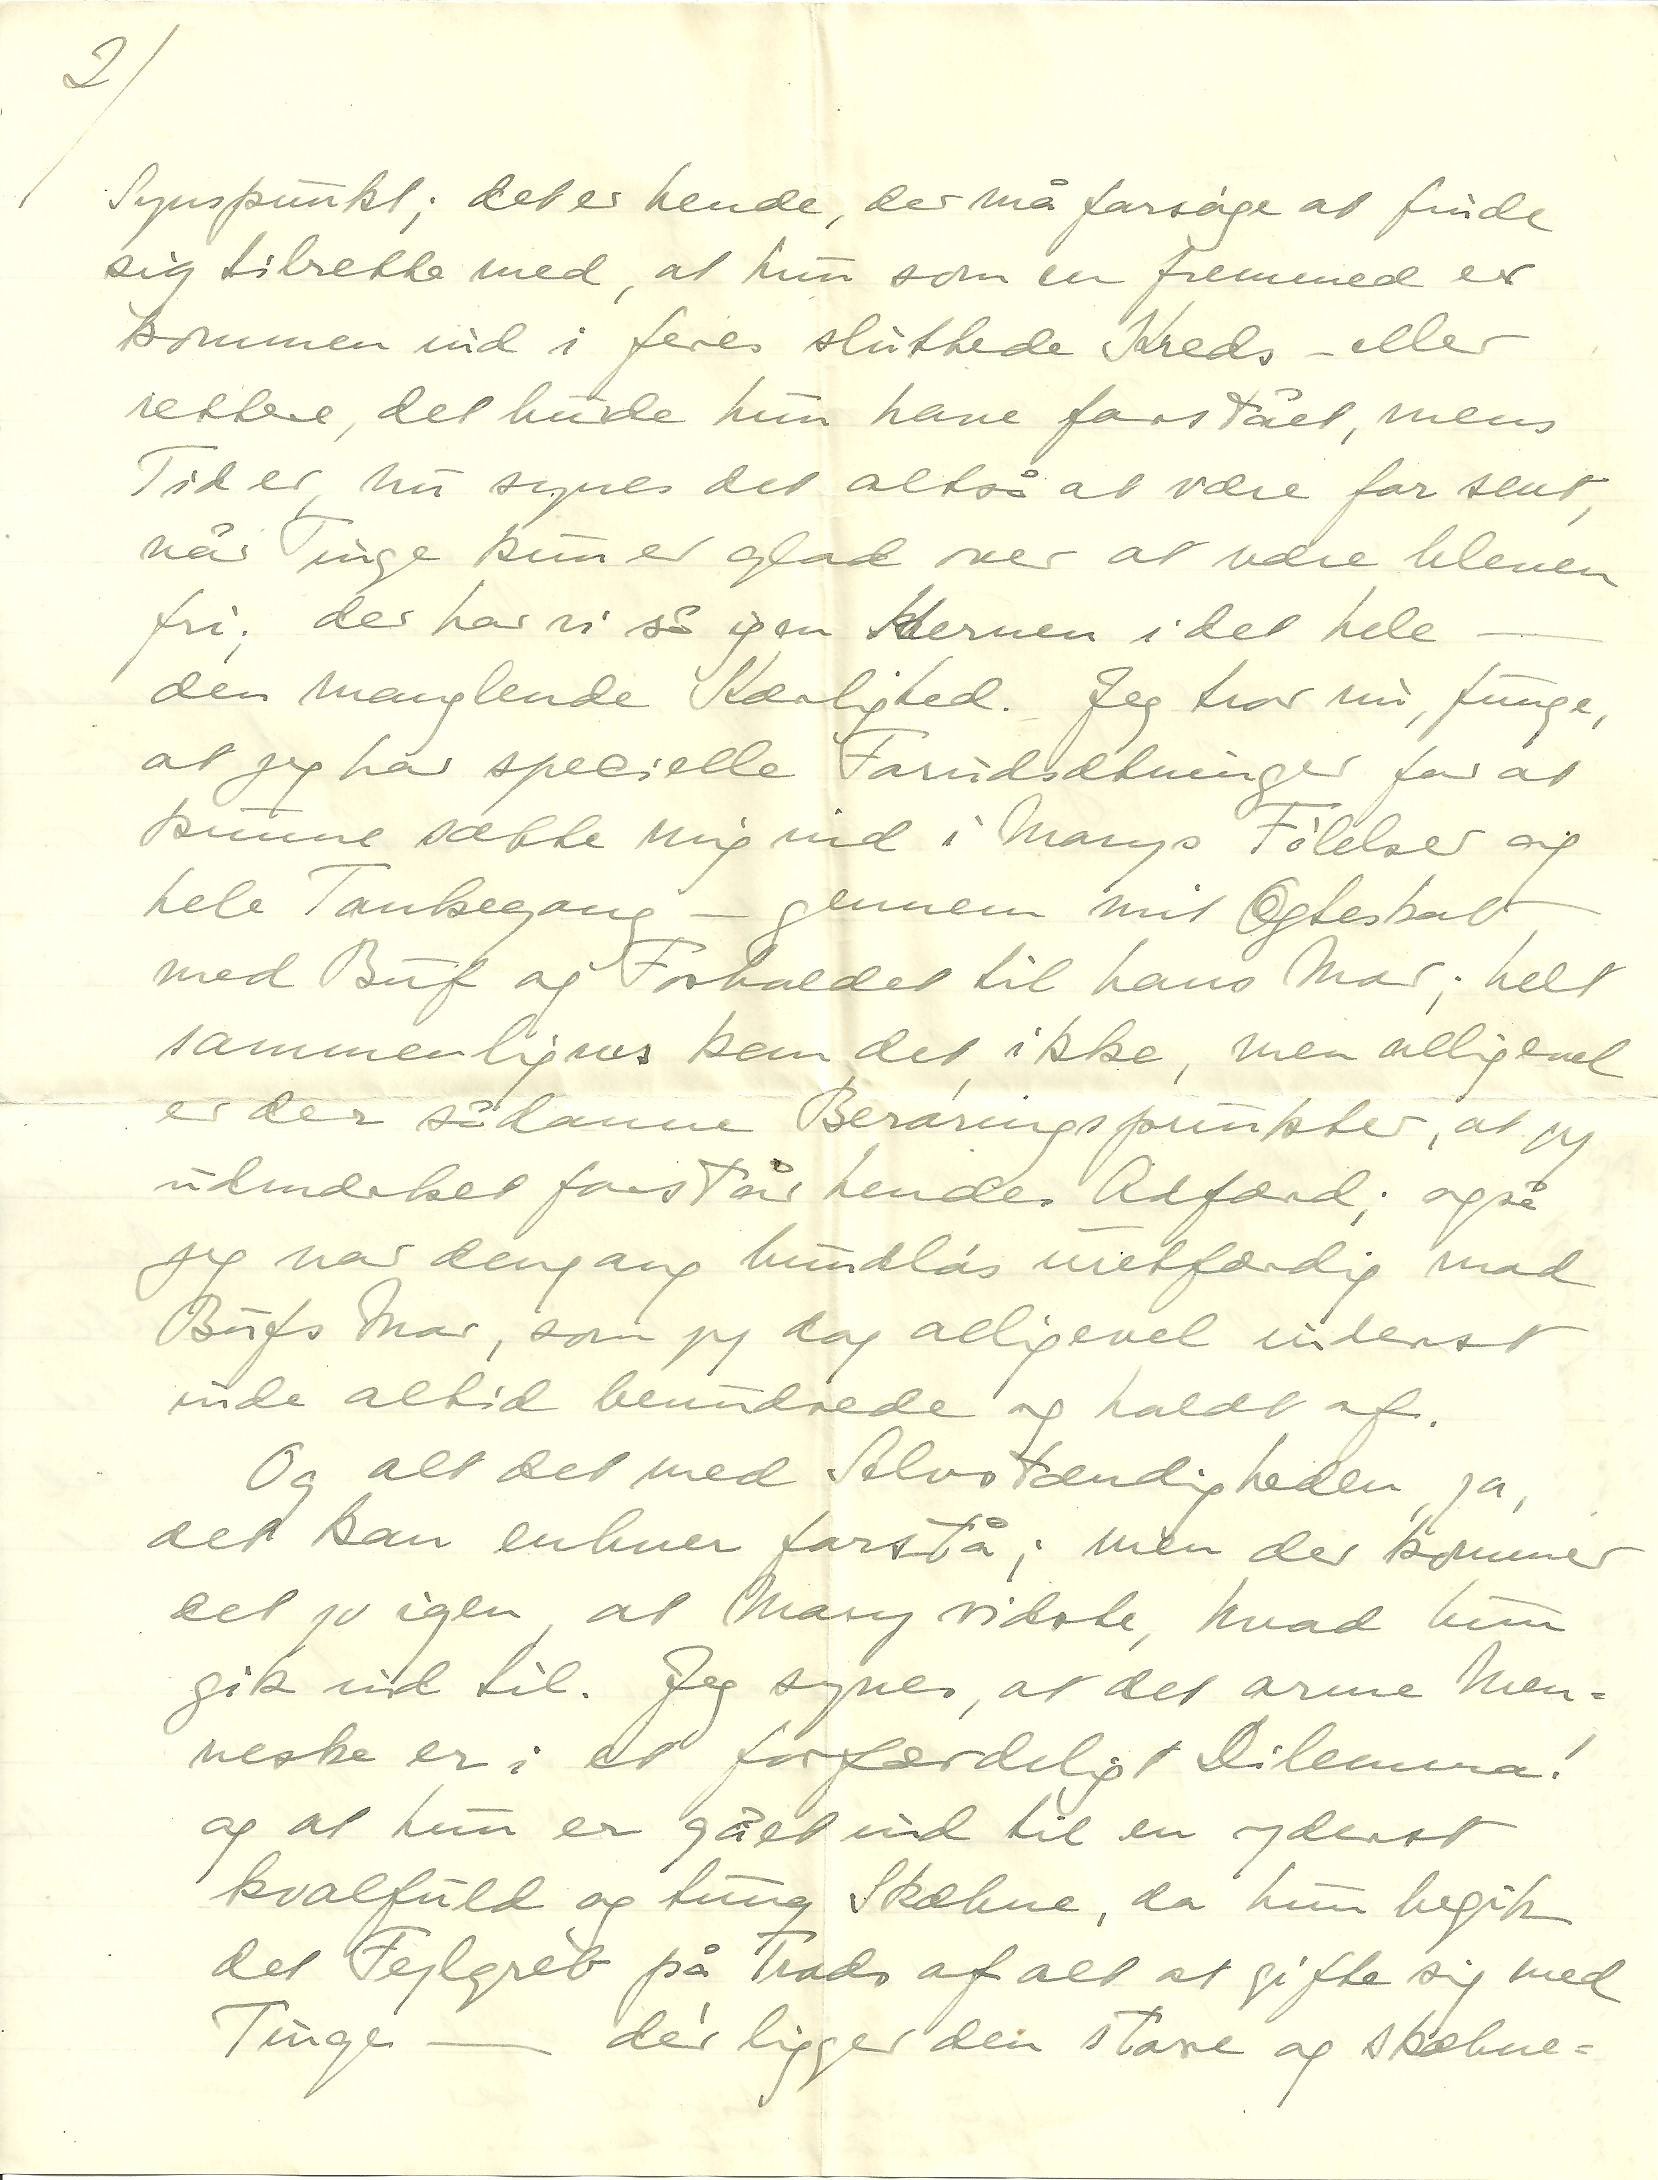 2/
Synspunkt; det er hende, der må forsøge at finde
sig tilrette med, at hun som en fremmed er
kommen ind i jeres sluttede Kreds - eller
rettere, det burde hun have forstået, mens
Tid er, nu synes det altså at være for sent,
når Tinge kun er glad over at være bleven
fri; der har vi så igen Kernen i det hele —
den manglende Kærlighed. Jeg tror nu, Junge,
at jeg har specielle Forudsætninger for at
kunne sætte mig ind i Marys Følelser og
hele Tankegang - gennem mit Ægteskab
med Buf og Forholdet til hans Mor; helt
sammenlignes kan det ikke, men alligevel
er der sådanne Berøringspunkter, at jeg
udmærket forstår hendes Adfærd; også
jeg var dengang bundløs uretfærdig mod
Bufs Mor, som jeg dog alligevel inderst
inde altid beundrede og holdt af.
Og alt det med Selvstændigheden, ja,
det kan enhver forstå; men der kommer
det jo igen, at Mary vidste, hvad hun
gik ind til. Jeg synes, at det arme Men=
neske er i et forfærdeligt Dilemma!
og at hun er gået ind til en yderst
kvalfuld og tung Skæbne, da hun begik
det Fejlgreb på Trods af alt at gifte sig med
Tinge — dér ligger den store og skæbne=